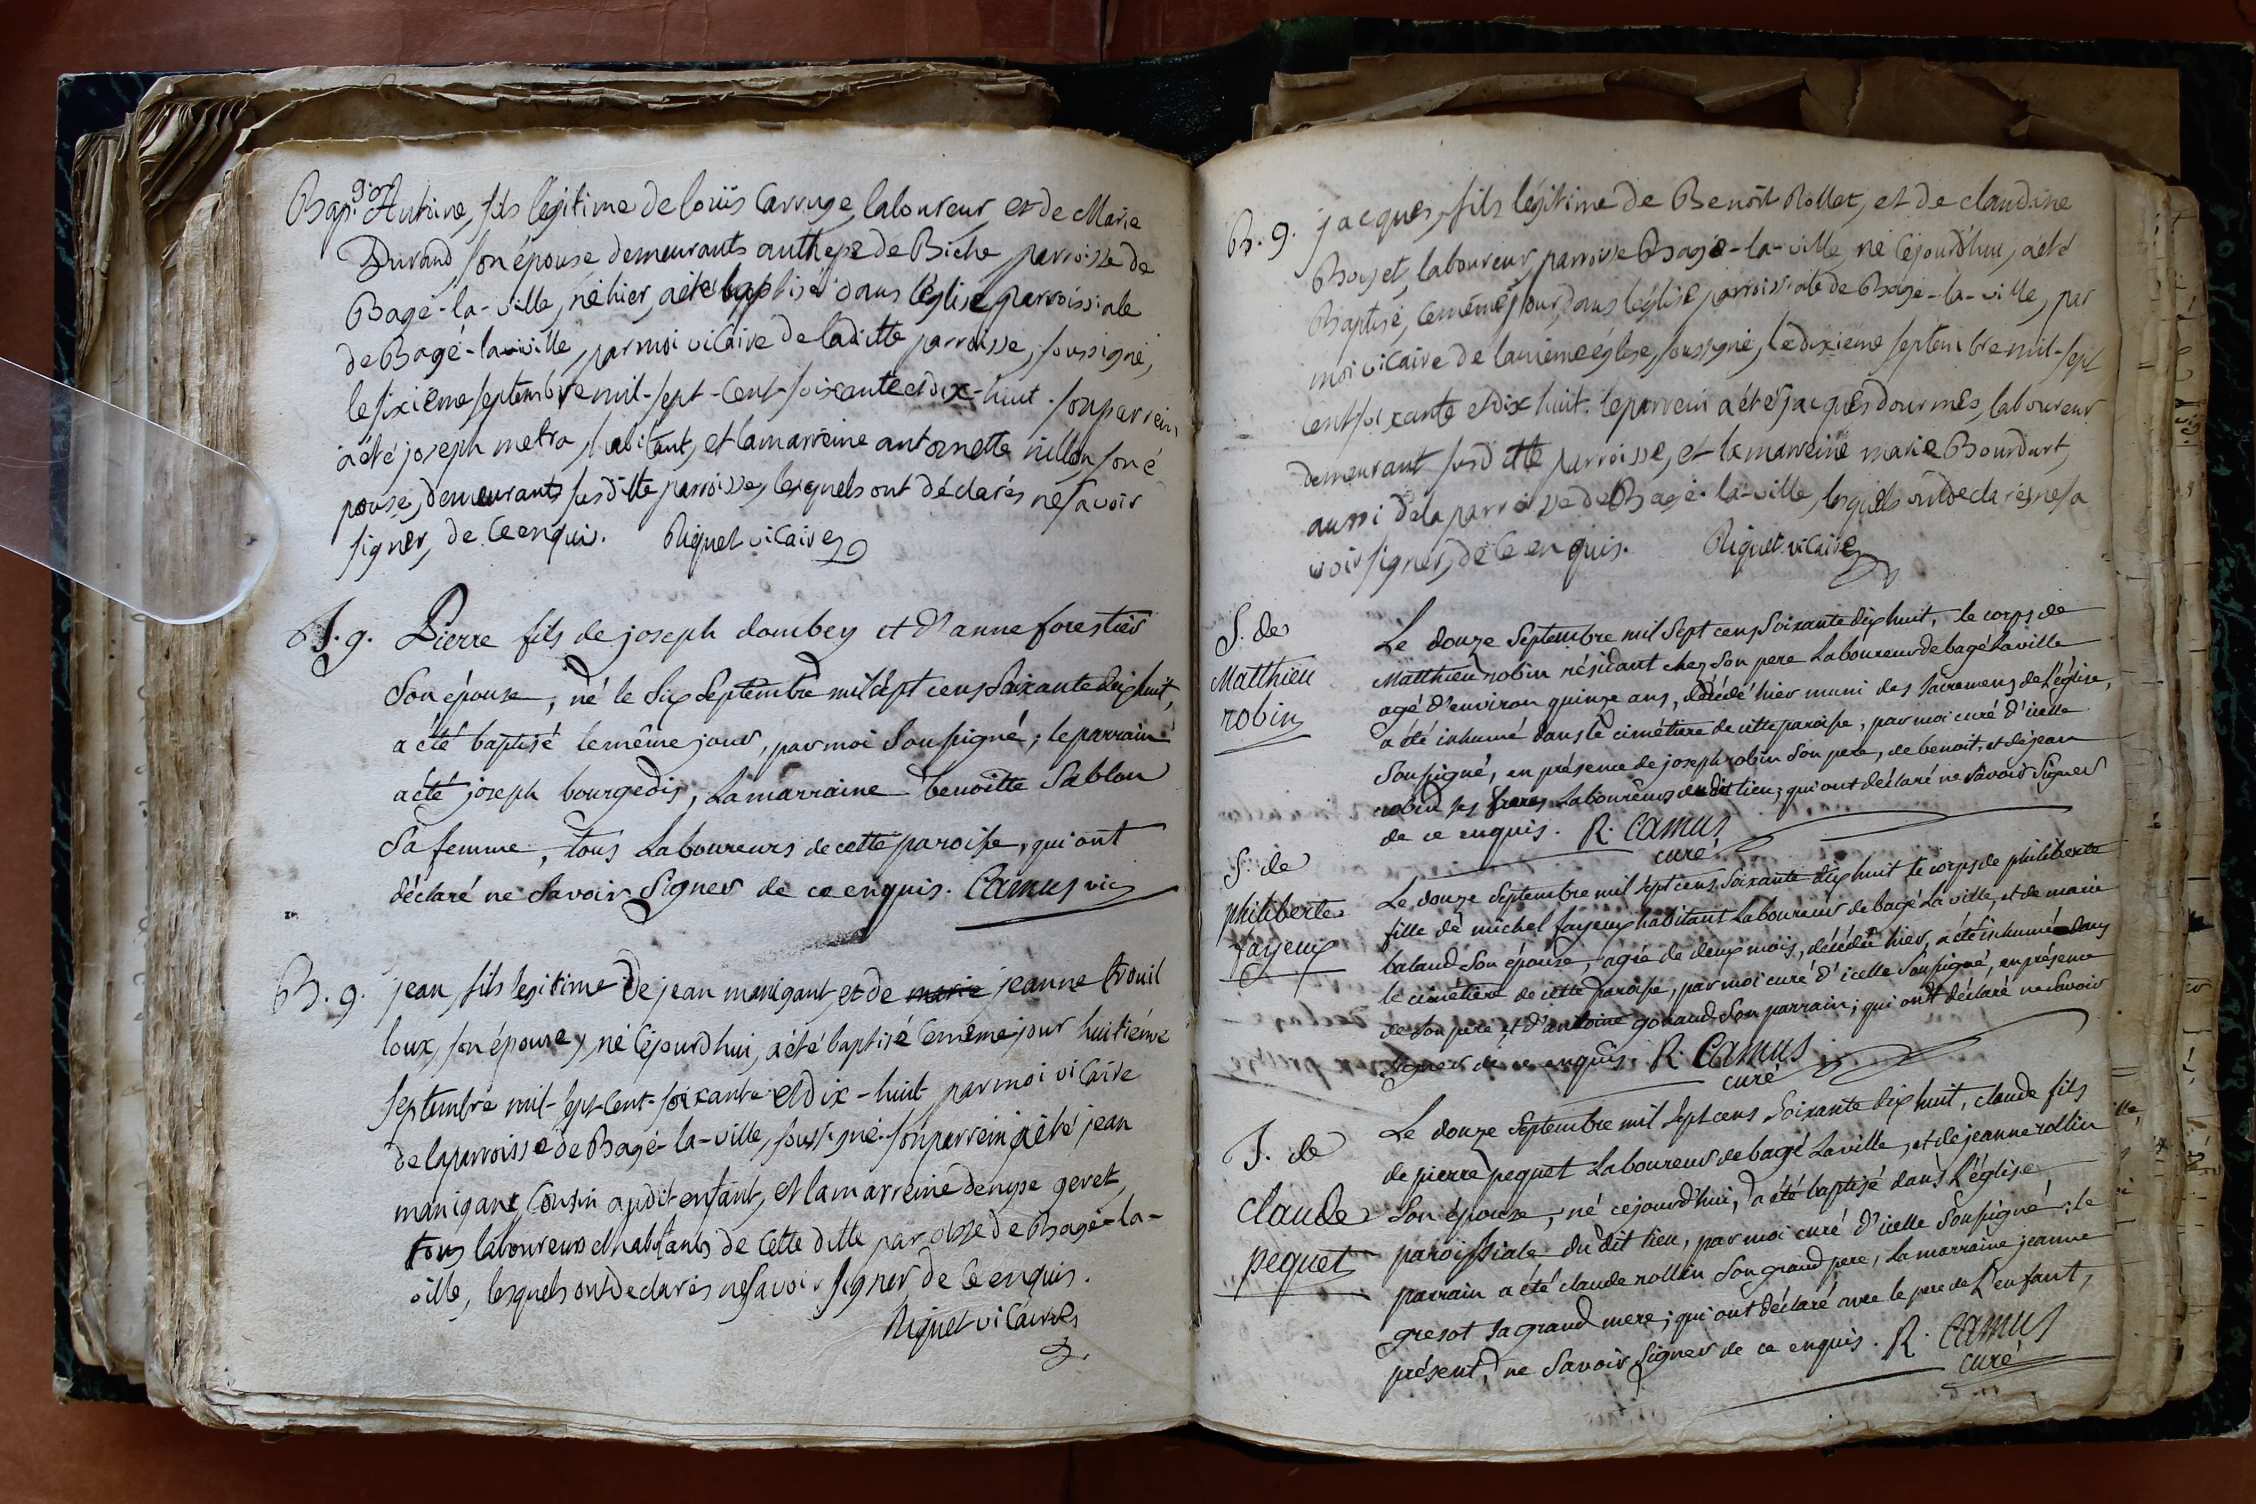 Bap. g. Antoine, fils legitime de loüis Carruge, laboureur, et de Marie
Durand son épouse demeurants au de Biche parroisse de
Bagé-la-ville, né hier, a eté baptisé dans l'église parroissiale
de Bagé-la-ville, par moi vicaire de laditte parroisse, soussigné,
le sixieme septembre mil-sept-cent-soixante et dix-huit. son parrein
a été joseph metra, habitant, et la marreine antoinette nillon son é
pouse, demeurants susditte parroisse, lesquels ont déclarés ne savoir
signer, de ce enquis. Riquet vicaire
B. g. Pierre fils de joseph dombey et d'anne forestier
Son épouse, né le Six Septembre mil sept cens Soixante dix huit,
a été baptisé le même jour, par moi Soussigné; le parrain
a été joseph bourgedis, La marraine benoitte Sablon
Sa femme, tous Laboureurs de cette paroisse, qui ont
déclaré ne Savoir Signer de ce enquis. Camus vic
B. g. jean, fils legitime de jean manigant, et de marie jeanne trouil
loux, son épouse, né cejourdhui, a été baptisé ce même jour huitiéme
septembre mil-sept-cent-soixante et dix-huit par moi vicaire
de la parroisse de Bagé-la-ville, soussigné. son parrein a été jean
manigant, Cousin audit enfant, et la marreine denyse gevet,
tous laboureurs et habitants de Cette ditte paroisse de Bagé-la-
ville, lesquels ont declarés ne savoir signer de ce enquis.
Riquet vicaire
B. g. jacques, fils légitime de Benoit Rollet, et de claudine
Boyet, laboureur, parroisse Bagé-la-ville, né cejourd'hui, a été
Baptisé, ce même jour, dans l'église parroissiale de Bagé-la-ville, par
moi vicaire de la même église, soussigné, le dixieme septembre mil-sept
cent soixante et dix huit. le parrein a été jacques dourmes, laboureur
demeurant susditte parroisse, et la marreine marie Bourdurt,
aussi de la parroisse de Bagé-la-ville, lesquels ont declarés ne sa
voir signer, de ce enquis. Riquet vicaire
S. de
Matthieu
robin
Le douze Septembre mil Sept cens Soixante dix huit, le corps de
Matthieu robin résidant chez Son pere Laboureur de bagé La ville
agé d'environ quinze ans, décédé hier muni des Sacremens de L'église,
a été inhumé dans le cimétiere de cette paroisse, par moi curé d'icelle
Soussigné, en présence de joseph robin Son pere, de benoit, et de jean
robin ses freres Laboureurs du dit lieu; qui ont déclaré ne Savoir Signer
de ce enquis. R. Camus
curé
S. de
philiberte
fayeux
Le douze Septembre mil sept cens Soixante dix huit le corps de philiberte
fille de michel fayeux habitant Laboureur de bagé La ville, et de marie
baland Son épouse, agée de deux mois, décédée hier, a été inhumée dans
le cimétiere de cette paroisse, par moi curé d'icelle Soussigné, en présence
de Son pere, et d'antoine gonaud Son parrain; qui ont déclaré ne Savoir
Signer de ce enquis. R. Camus
curé
B. de
claude
pequet
Le douze Septembre mil Sept cens Soixante dix huit, claude fils
de pierre pequet Laboureur de bagé La ville, et de jeanne rollin
Son épouse, né cejourd'hui, a été baptisé dans L'église
paroissiale du dit lieu, par moi curé d'icelle Soussigné; le
parrain a été claude rollin Son grand pere, La marraine jeanne
gresot Sa grand mere; qui ont déclaré avec le pere de L'enfant,
présent, ne Savoir Signer de ce enquis. R. Camus
curé